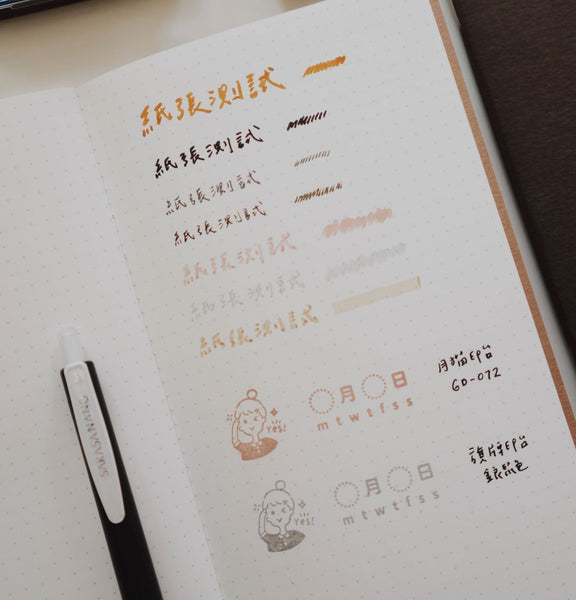 紙張測試
紙張測試
紙張測試
紙張測試
紙張測試
紙張測試
紙張測試
Yes!
月 日
m t w t f s s
月貓印台
GD-072
Yes!
月 日
m t w t f s s
旗牌印台
銀鼠色
SARASA NANO